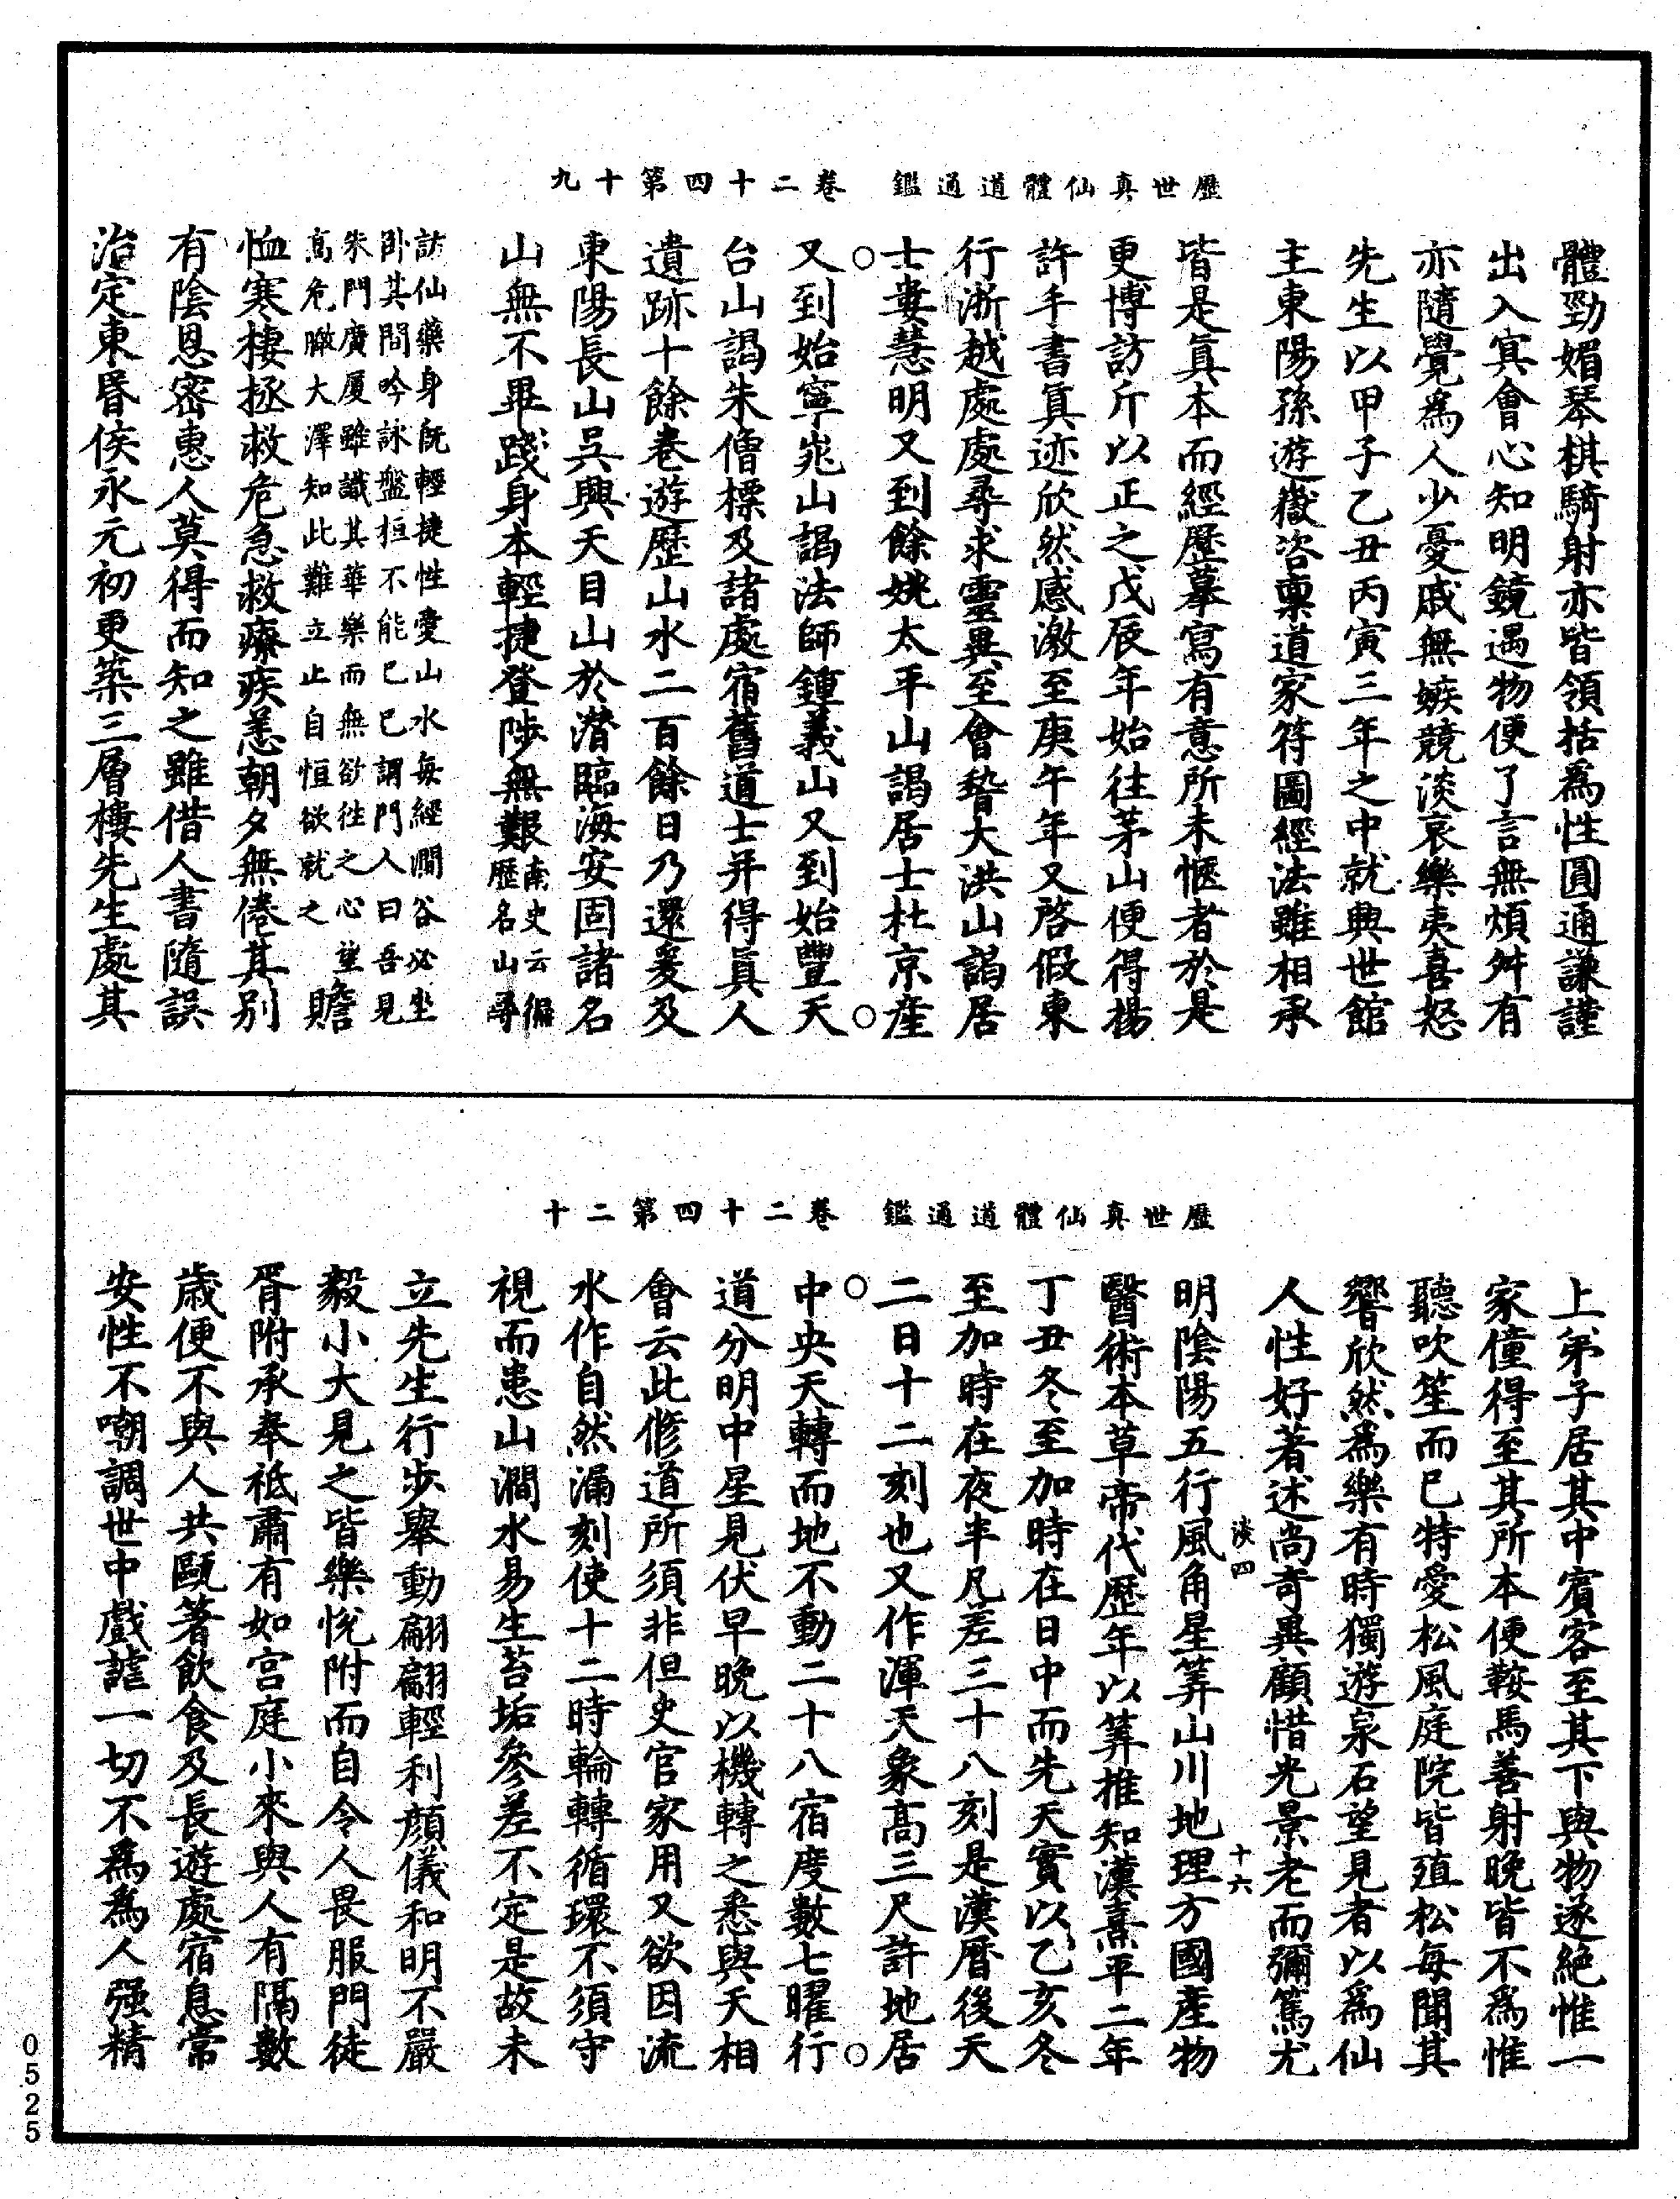 歷世真仙體道通鑑　卷二十四第十九
體勁媚琴棋騎射亦皆領括為性圓通謙謹
出入冥會心知明鏡遇物便了言無煩舛有
亦隨覺為人少憂戚無嫉競淡哀樂夷喜怒
先生以甲子乙丑丙寅三年之中就興世館
主東陽孫遊嶽咨稟道家符圖經法雖相承
皆是真本而經歷摹寫有意所未愜者於是
更博訪斤以正之戊辰年始往茅山便得楊
許手書真迹欣然感激至庚午年又啓假東
行浙越處處尋求靈異至會稽大洪山謁居
士婁慧明又到餘姚太平山謁居士杜京產
又到始寧㟁山謁法師鍾義山又到始豐天
台山謁朱僧標及諸處宿舊道士并得真人
遺跡十餘卷遊歷山水二百餘日乃還爰及
東陽長山吳興天目山於潛臨海安固諸名
山無不畢踐身本輕捷登陟無艱南史云徧歷名山尋
訪仙藥身既輕捷性愛山水每經澗谷必坐
卧其間吟詠盤桓不能已已謂門人曰吾見
朱門廣厦雖識其華樂而無欲往之心望
高危瞰大澤知此難立止自恒欲就之　贍
恤寒棲拯救危急救療疾恙朝夕無倦其別
有陰恩密惠人莫得而知之雖借人書隨誤
治定東昏侯永元初更築三層樓先生處其
歷世真仙體道通鑑　卷二十四第二十
上弟子居其中賓客至其下與物遂絕惟一
家僮得至其所本便鞍馬善射晚皆不為惟
聽吹笙而已特愛松風庭院皆殖松每聞其
響欣然為樂有時獨遊泉石望見者以為仙
人性好著述尚奇異顧惜光景老而彌篤尤
淡四　十六
明陰陽五行風角星筭山川地理方國產物
醫術本草帝代歷年以筭推知漢熹平二年
丁丑冬至加時在日中而先天實以乙亥冬
至加時在夜半凡差三十八刻是漢曆後天
二日十二刻也又作渾天象高三尺許地居
中央天轉而地不動二十八宿度數七曜行
道分明中星見伏早晚以機轉之悉與天相
會云此修道所須非但史官家用又欲因流
水作自然漏刻使十二時輪轉循環不須守
視而患山澗水易生苔垢參差不定是故未
立先生行步舉動翩翩輕利顏儀和明不嚴
毅小大見之皆樂悅附而自令人畏服門徒
胥附承奉祗肅有如宮庭小來與人有隔數
歲便不與人共甌著飲食及長遊處宿息常
安性不嘲調世中戲謔一切不為為人强精
0525